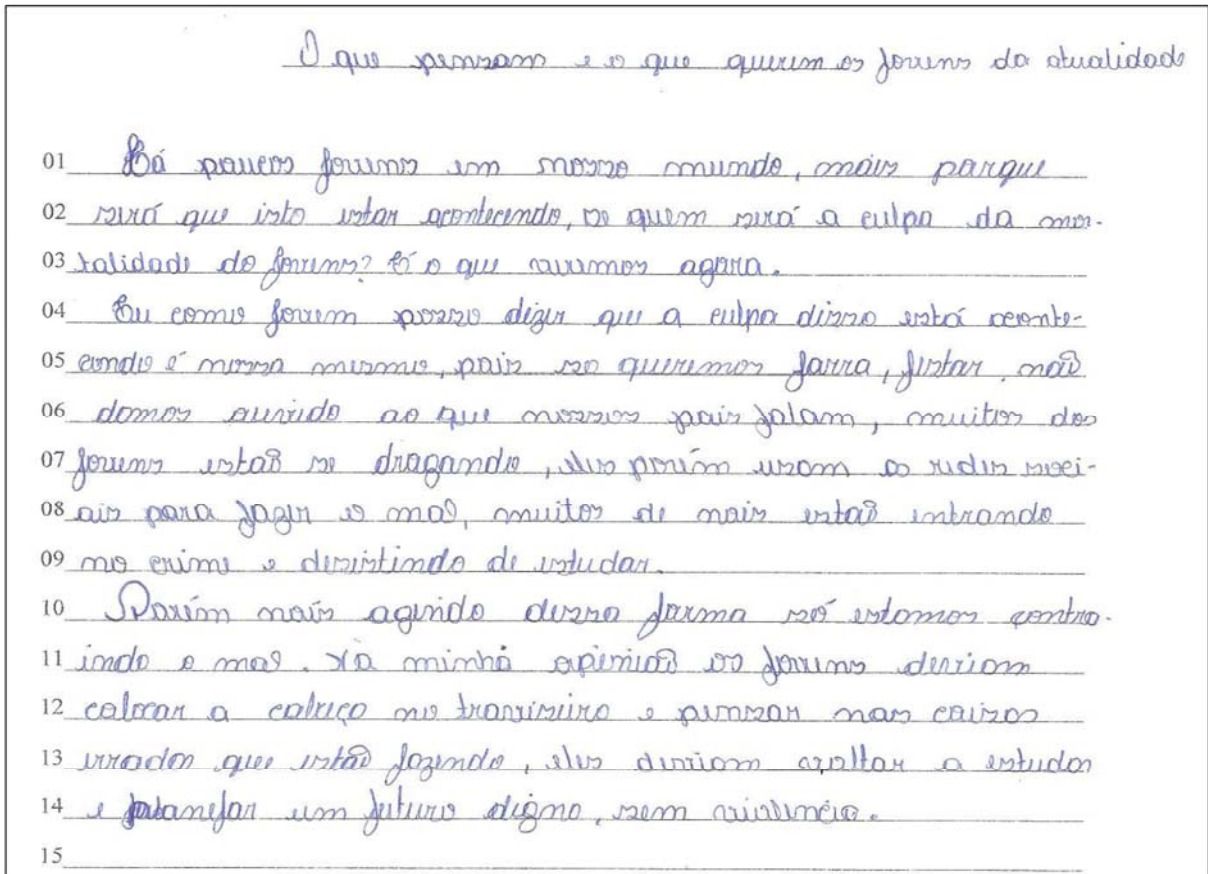 O que pensam e o que querem os jovens da atualidade
01 Há poucos jovens em nosso mundo, mais porque
02 será que isto estar acontecendo, de quem será a culpa da mor-
03 talidade do jovens? É o que veremos agora.
04 Eu como jovem posso dizer que a culpa disso está aconte-
05 cendo é nossa mesmo, pois so queremos farra, festar, não
06 damos ouvido ao que nossos pais falam, muitos dos
07 jovens estão se dragando, eles porém usam as redes soci-
08 ais para fazer o mal, muitos de nois estão entrando
09 no crime e desistindo de estudar.
10 Porém nois agindo dessa forma só estamos contra-
11 indo o mal. Na minha opinião os jovens deviam
12 colocar a cabeça no travisseiro e pensar nas coisas
13 erradas que estão fazendo, eles deviam voltar a estudar
14 e planejar um futuro digno, sem violência.
15